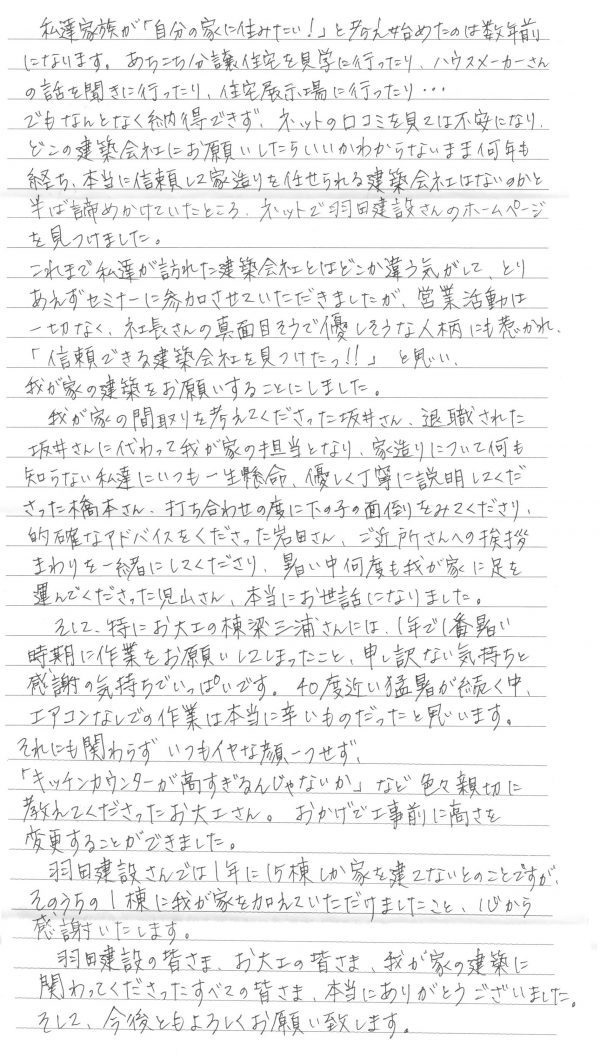 私達家族が「自分の家に住みたい！」と考え始めたのは数年前
になります。あちこち分譲住宅を見学に行ったり、ハウスメーカーさん
の話を聞きに行ったり、住宅展示場に行ったり・・・
でもなんとなく納得できず、ネットの口コミを見ては不安になり、
どこの建築会社にお願いしたらいいかわからないまま何年も
経ち、本当に信頼して家造りを任せられる建築会社はないのかと
半ば諦めかけていたところ、ネットで羽田建設さんのホームページ
を見つけました。
これまで私達が訪れた建築会社とはどこか違う気がして、とり
あえずセミナーに参加させていただきましたが、営業活動は
一切なく、社長さんの真面目そうで優しそうな人柄にも惹かれ、
「信頼できる建築会社を見つけたっ!!」と思い、
我が家の建築をお願いすることにしました。
我が家の間取りを考えてくださった坂井さん、退職された
坂井さんに代わって我が家の担当となり、家造りについて何も
知らない私達にいつも一生懸命、優しく丁寧に説明してくだ
さった橋本さん、打ち合わせの度に下の子の面倒をみてくださり、
的確なアドバイスをくださった岩田さん、ご近所さんへの挨拶
まわりを一緒にしてくださり、暑い中何度も我が家に足を
運んでくださった児山さん、本当にお世話になりました。
そして、特にお大工の棟梁三浦さんには、1年で1番暑い
時期に作業をお願いしてしまったこと、申し訳ない気持ちと
感謝の気持ちでいっぱいです。40度近い猛暑が続く中、
エアコンなしでの作業は本当に辛いものだったと思います。
それにも関わらずいつもイヤな顔一つせず、
「キッチンカウンターが高すぎるんじゃないか」など色々親切に
教えてくださったお大工さん。おかげで工事前に高さを
変更することができました。
羽田建設さんでは1年に15棟しか家を建てないとのことですが、
そのうちの1棟に我が家を加えていただけましたこと、心から
感謝いたします。
羽田建設の皆さま、お大工の皆さま、我が家の建築に
関わってくださったすべての皆さま、本当にありがとうございました。
そして、今後ともよろしくお願い致します。